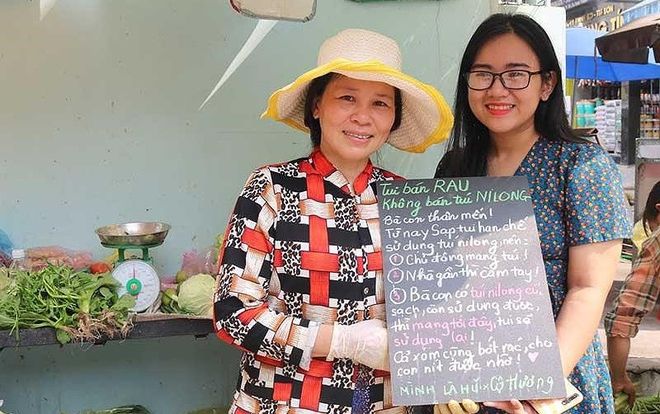 Tui bán RAU
không bán túi NILONG
Bà con thân mến!
Từ nay Sạp tui hạn chế
sử dụng túi nilong nên:
① Chủ động mang túi!
② Nhà gần thì cầm tay!
③ Bà con có túi nilong cũ,
sạch, còn sử dụng được,
thì mang tới đây, tui sẽ
sử dụng lại!
Cả xóm cùng bớt rác, cho
con nít được nhờ!
MÌNH LÀ HÝ x Cô Hương